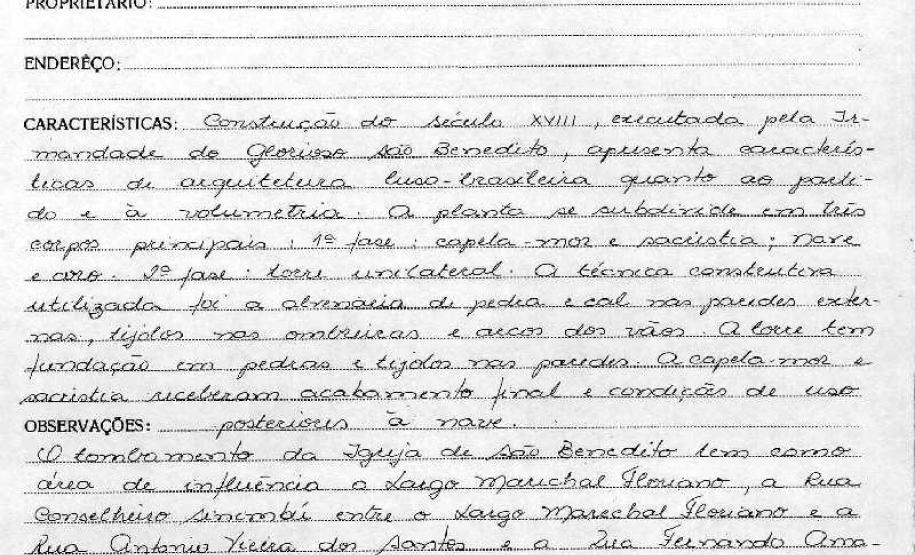 PROPRIETÁRIO:
ENDERÊÇO:
CARACTERÍSTICAS: Construção do século XVIII, executada pela Ir-
mandade do Glorioso São Benedito, apresenta caracterís-
ticas de arquitetura luso-brasileira quanto ao parti-
do e à volumetria. A planta se subdivide em três
corpos principais: 1º fase: capela-mor e sacristia; nave
e coro. 2º fase: torre unilateral. A técnica construtiva
utilizada foi a alvenaria de pedra e cal nas paredes exter-
nas, tijolos nas ombreiras e arcos dos vãos. A torre tem
fundação em pedras e tijolos nas paredes. A capela-mor e
sacristia receberam acabamento final e condições de uso
OBSERVAÇÕES: posteriores à nave.
O tombamento da Igreja de São Benedito tem como
área de influência o Largo Marechal Floriano, a Rua
Conselheiro Sinimbú entre o Largo Marechal Floriano e a
Rua Antonio Vieira dos Santos e a Rua Fernando Ama-